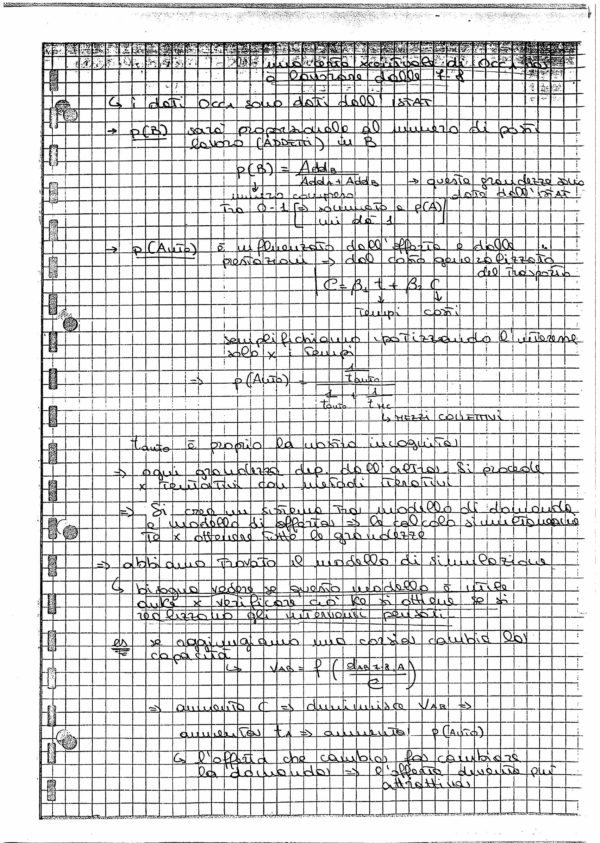 una certa % di Occ1
a lavorare dalle 7-8
↳ i dati Occ1 sono dati dall'ISTAT
→ p(B) sarà proporzionale al numero di posti
lavoro (ADDETTI) in B
p(B) = AddB / (AddA + AddB) → queste grandezze sono
date dall'ISTAT
numero compreso
tra 0-1 [⇒ sommato a p(A)
mi dà 1]
→ p(Auto) è influenzato dall'offerta e dalle
prestazioni ⇒ dal costo generalizzato
del trasporto
C = β1 t + β2 C
tempi costi
semplifichiamo ipotizzando l'interesse
solo x i tempi
⇒ p(Auto) = (1/tauto) / (1/tauto + 1/tMC)
↳ MEZZI COLLETTIVI
tauto è proprio la nostra incognita
⇒ ogni grandezza dip. dall'altra. Si procede
x tentativi con metodi iterativi
⇒ Si crea un sistema tra modello di domanda
e modello di offerta ⇒ le calcolo simultaneamen
te x ottenere tutte le grandezze
⇒ abbiamo trovato il modello di simulazione
↳ bisogna vedere se questo modello è utile
anke x verificare ciò ke si ottiene se si
realizzano gli interventi pensati
es se aggiungiamo una corsia cambia la
capacità
↳ VAB = f (dAB 7-8, A / C)
⇒ aumenta C ⇒ diminuisce VAB ⇒
aumenta t1 ⇒ aumenta p(Auto)
↳ l'offerta che cambia fa cambiare
la domanda ⇒ l'offerta diventa più
attrattiva